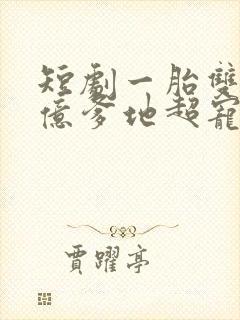 短劇一胎雙
億爹地超寵
賈躍亭